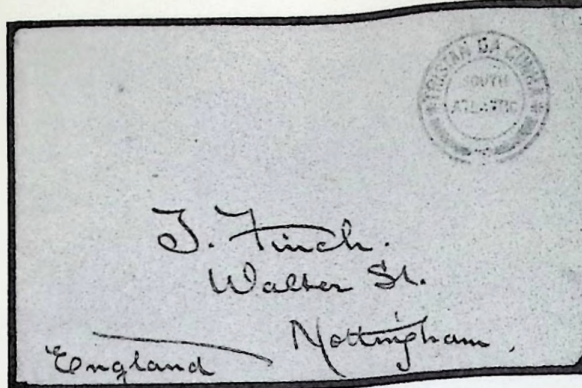 TRISTAN DA CUNHA
SOUTH
ATLANTIC
J. Finch.
Walter St.
Nottingham.
England